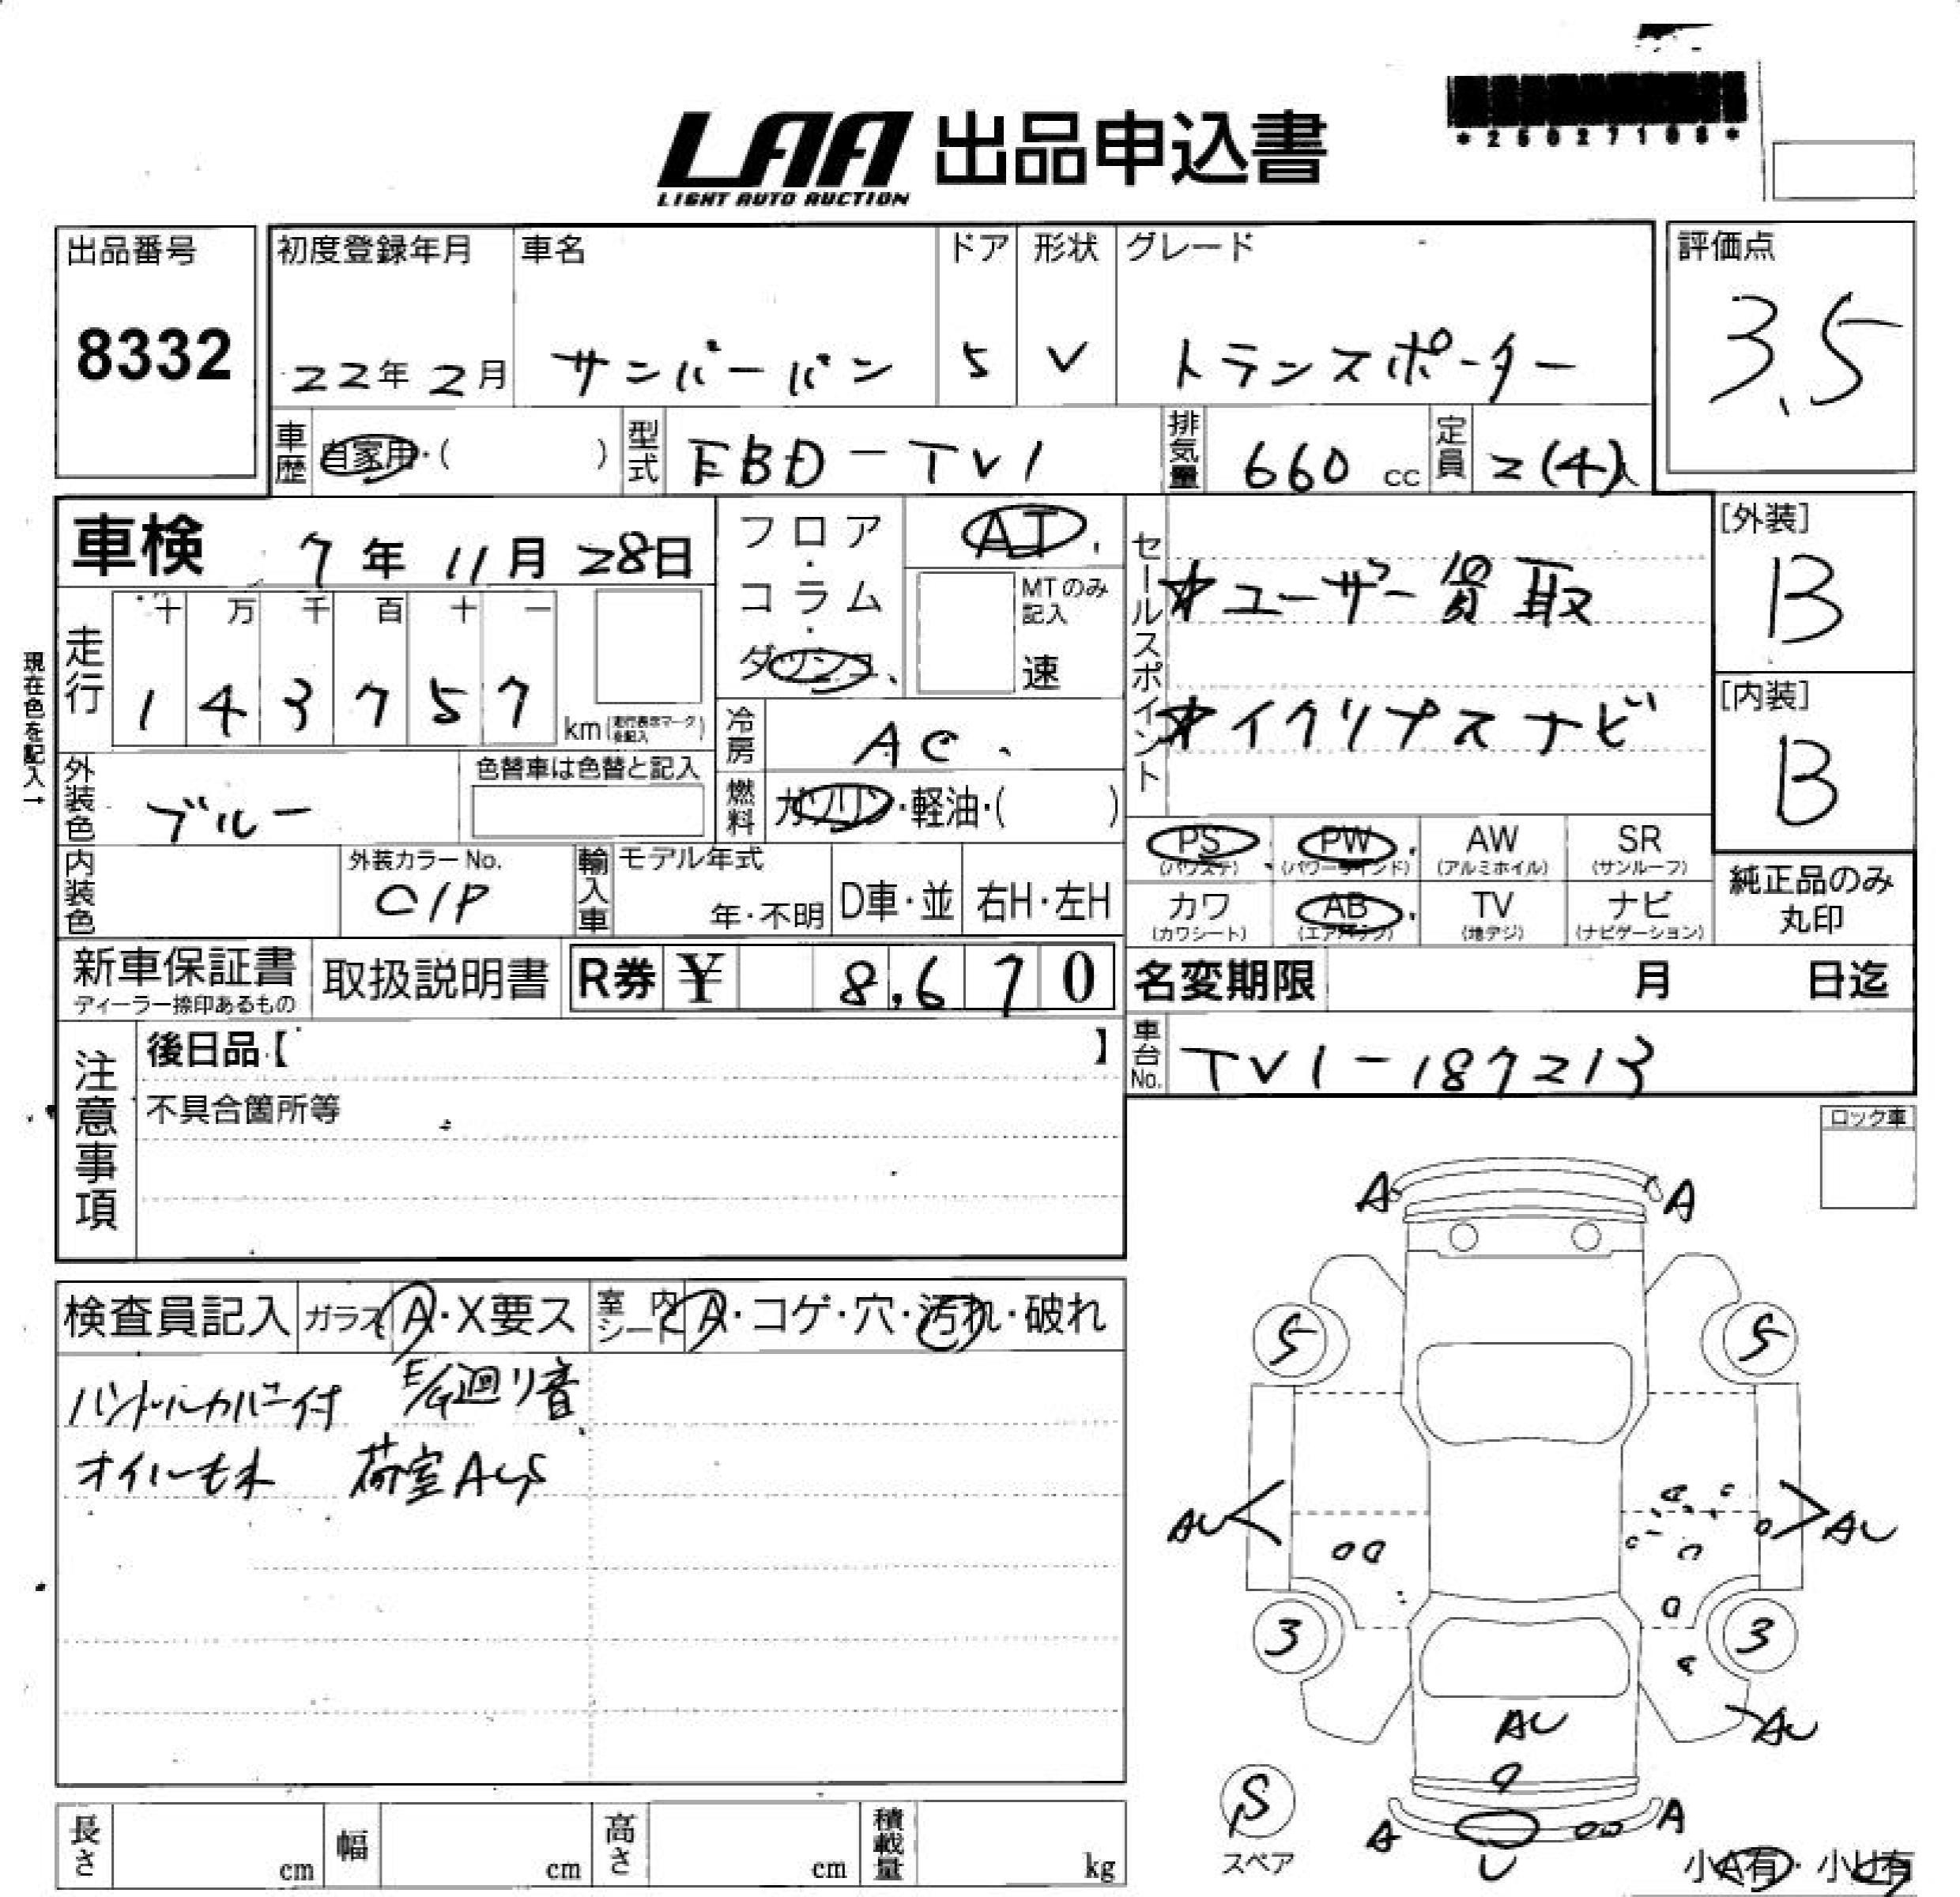 *25027106*
LAA 出品申込書
LIGHT AUTO AUCTION
出品番号
8332
初度登録年月
22年 2月
車名
サンバーバン
ドア
5
形状
V
グレード
トランスポーター
評価点
3.5
車歴
自家用・( )
型式
EBD-TV1
排気量
660 cc
定員
2(4)人
車検 7年 11月 28日
フロア・コラム・ダッシュ
AT
MTのみ記入
速
セールスポイント
☆ユーザー買取
☆イクリプスナビ
[外装]
B
[内装]
B
現在色を記入→
走行
十 万 千 百 十 一
1 4 3 7 5 7
km(走行表示マーク を記入)
冷房
AC
燃料
ガソリン・軽油・( )
外装色
ブルー
色替車は色替と記入
内装色
外装カラーNo.
01P
輸入車
モデル年式
年・不明
D車・並
右H・左H
PS
(パワステ)
PW
(パワーウインド)
AW
(アルミホイル)
SR
(サンルーフ)
カワ
(カワシート)
AB
(エアバッグ)
TV
(地デジ)
ナビ
(ナビゲーション)
純正品のみ
丸印
新車保証書
ディーラー捺印あるもの
取扱説明書
R券 ¥ 8,670
名変期限 月 日迄
注意事項
後日品【 】
不具合箇所等
車台No.
TV1-187213
ロック車
検査員記入
ガラス A・X要ス
室内シート A・コゲ・穴・汚れ・破れ
ハンドルカバー付 E/G廻り音
オイルモレ 荷室AUS
A A
5 5
AU AU
3 3
AU
AU
A A
U
S
スペア
小A有・小U有
長さ cm
幅 cm
高さ cm
積載量 kg